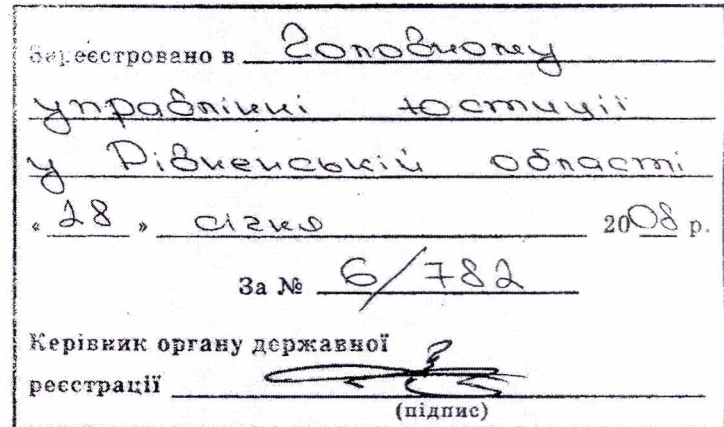 Зареєстровано в Головному
управлінні юстиції
у Рівненській області
« 28 » січня 2008 р.
За № 6/782
Керівник органу державної
реєстрації
(підпис)